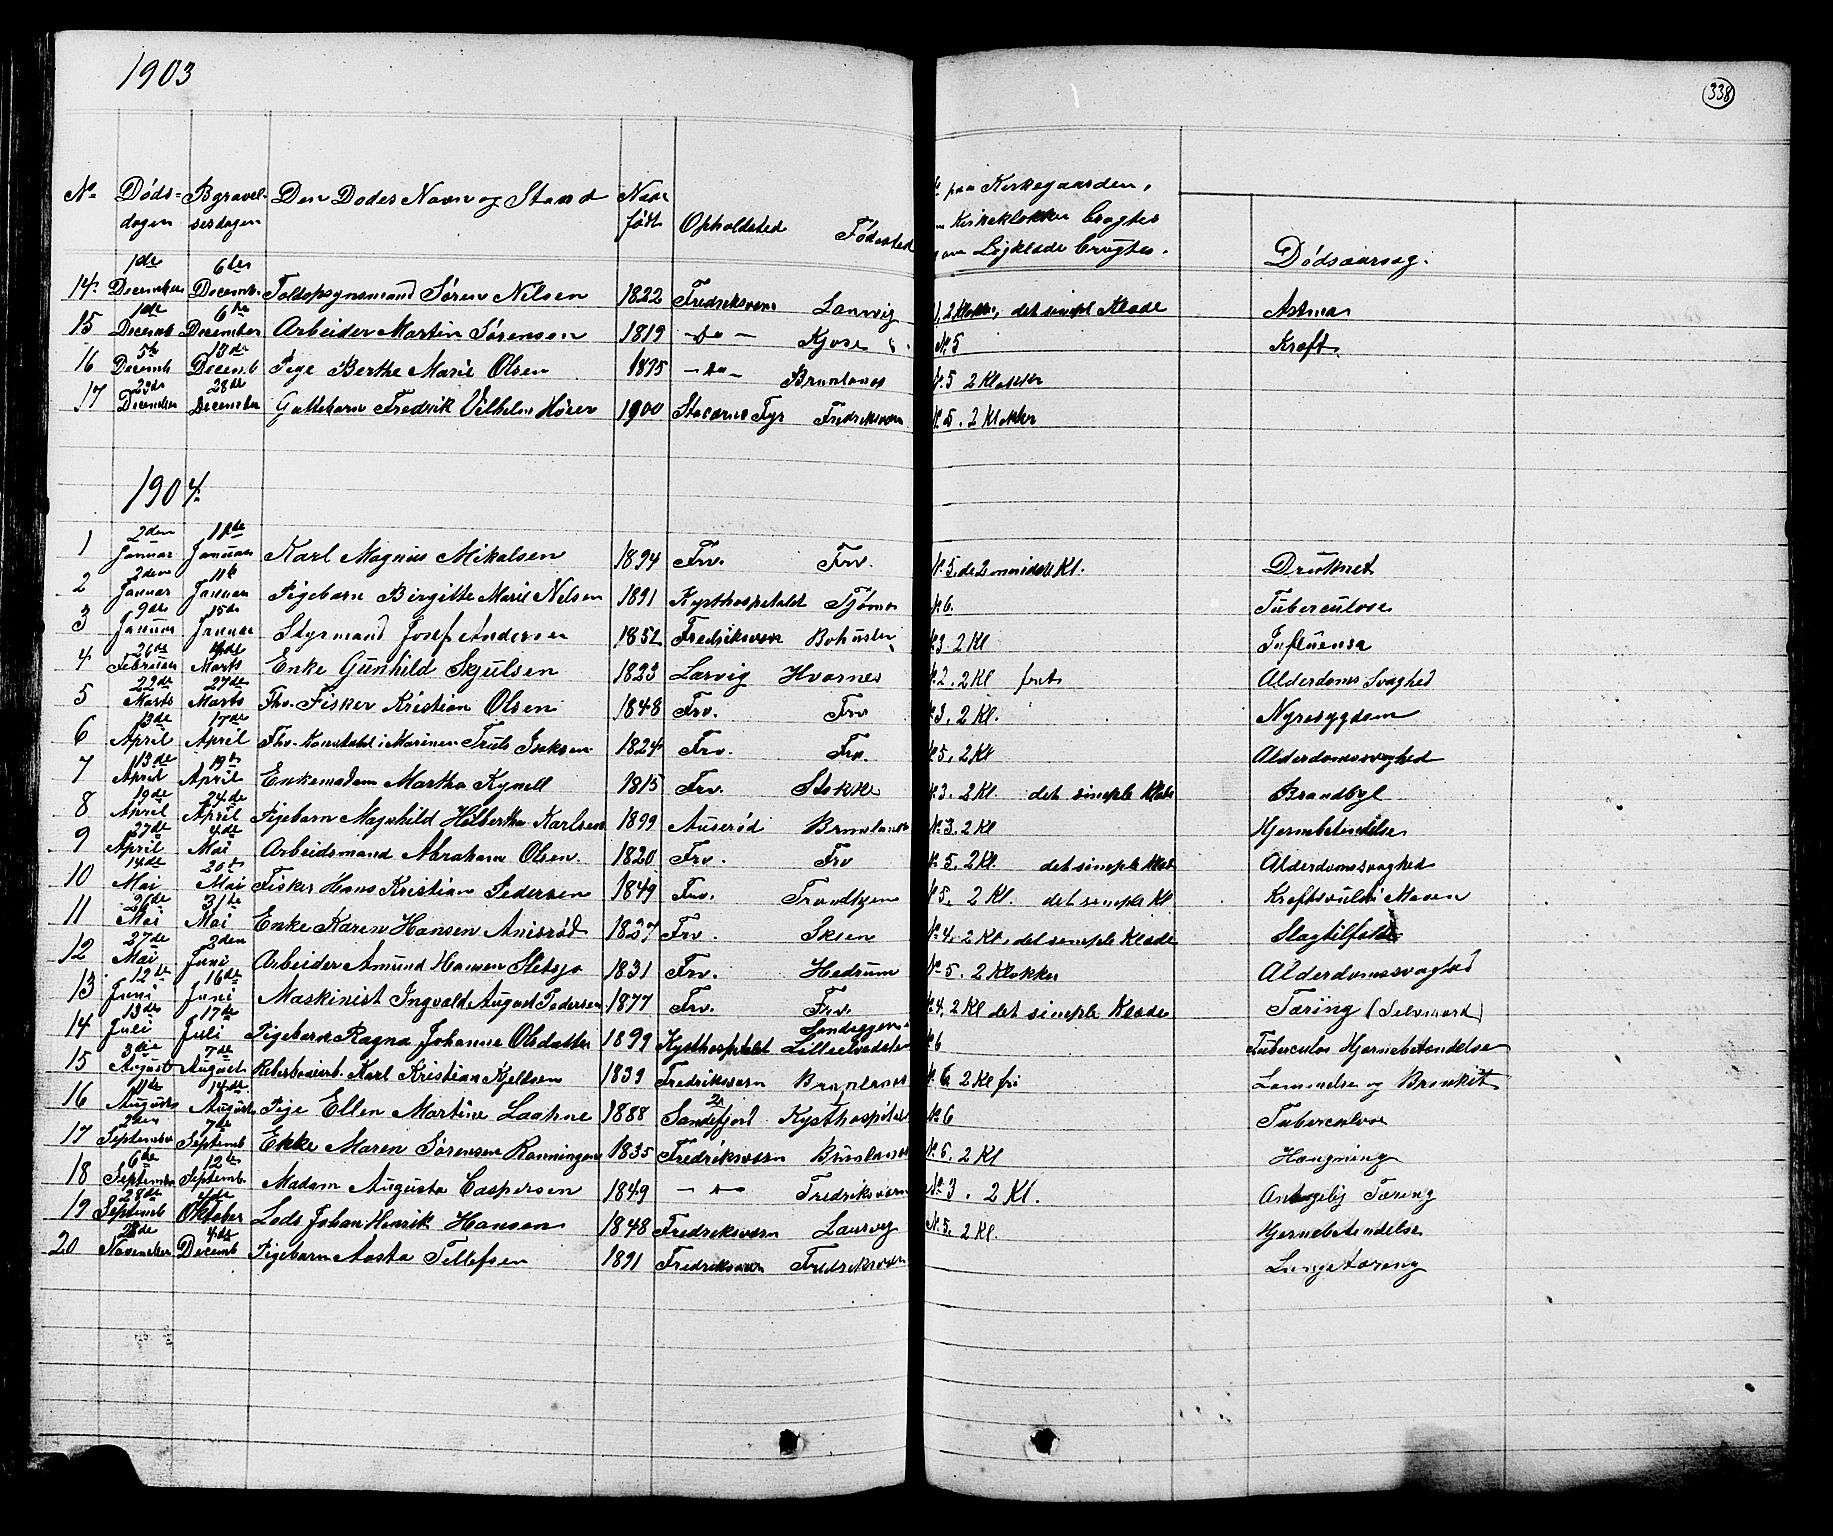 1903
338
No Døds- Bgravel- Den Dødes Navn og Stand Naar paa Kirkegaarden,
dagen sesdagen født Opholdsted Fødested Kirkeklokker brugtes
Ligklæde brugtes. Dødsaarsag.
1de 6te
14 December Decemb. Toldopsynsmand Søren Nilsen 1822 Fredriksværn Laurvig 2 Klokker, det simple Klæde Astma
1de 6te
15 Decemb December Arbeider Martin Sørensen 1819 -do- Kjose No 5 Kræft
5te 10de
16 Decemb Decemb Pige Berthe Marie Olsen 1895 -do- Brunlanes No. 5 2 Klokker
23de 28de
17 December December Guttebarn Fredrik Vilhelm Høier 1900 Staværns Fyr Fredriksværn No. 5. 2 Klokker
1904.
2den 11de
1 Januar Januar Karl Magnus Mikalsen 1894 Frv. Frv. No. 5, de 2 Kl. Druknet
2den 11te
2 Januar Januar Pigebarn Birgitte Marie Nilsen 1891 Kysthospitalet Tjømø No 6. Tuberculose
9de 15de
3 Januar Januar Styrmand Josef Andersen 1852 Fredriksværn Bohuslen No 3 2 Kl Influensa
26de
4 Februar Marts Enke Gunhild Skjulsen 1823 Larvig Hvarnes No 2. 2 Kl Alderdoms Svaghed
22de 27de
5 Marts Marts Fhv. Fisker Kristian Olsen 1848 Frv. Frv No 3, 2 Kl. Nyresygdom
13de 17de
6 April April Fhv. i Marinen Truls Isaksen 1824 Frv. Frv. No 5, 2 Kl Alderdomssvaghed
13de 19de
7 April April Enkemadam Martha Kynell 1815 Frv. Stokke No 3. 2 Kl. det simple Klæde Brandbyl
19de 24de
8 April April Pigebarn Magnhild Helbertha Karlsen 1899 Auserød Brunlanes No 3. 2 Kl Hjernebetendelse
27de 4de
9 April Mai Arbeidsmand Abraham Olsen 1820 Frv. Frv No 5. 2 Kl det simple Klæde Alderdomssvaghed
14de 20de
10 Mai Mai Fisker Hans Kristian Pedersen 1849 Frv. Trondhjem No 5. 2 Kl. det simple Kl Kræftsvulst i Maven
26de 31te
11 Mai Mai Enke Karen Hansen Anisrød 1827 Frv. No 4, 2 Kl, det simple Klæde Slagtilfælde
27de 2den
12 Mai Juni Arbeider Amund Hansen 1831 Frv. Hedrum No 5. 2 Klokker Alderdomssvaghed
12te 16de
13 Juni Juni Maskinist Ingvald August Pedersen 1877 Frv. Frv. No 4, 2 Kl det simple Klæde Tæring (Selvmord)
13de 17de
14 Juli Juli Pigebarn Ragna Johanne Olsdatter 1899 Kysthospitalet No 6 Tuberculos Hjernebetendelse
3die 7de
15 August August Karl Kristian Kjeldsen 1839 Fredriksværn Brunlanes No. 6, 2 Kl fri Lammelse og Bronkit
11te 14de
16 August August Pige Ellen Martine Laahne 1888 Sandefjord Kysthospitalet No 6 Tuberculose
2den 7de
17 September Septemb Enke Maren Sørensen Ronningen 1835 Fredriksværn Brunlanes No. 6. 2 Kl Hængning
6te 12te
18 September Septemb Madam Augusta Caspersen 1849 -do- Fredriksværn No 3. 2 Kl. Antagelig Tæring
28de 4de
19 Septemb Oktober Lods Johan Henrik Hansen 1848 Fredriksværn Laurvig No. 5. 2 Kl. Hjernebetendelse
28de 4de
20 November Decemb Pigebarn Aasta Tellefsen 1891 Fredriksværn Fredriksværn Lungetæring